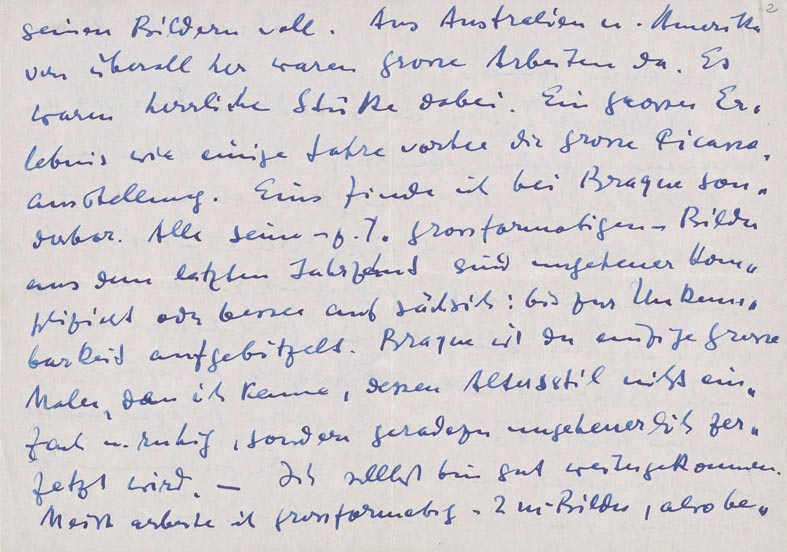 2
seinen Bildern voll. Aus Australien u. Amerika
von überall her waren grosse Arbeiten da. Es
waren herrliche Stücke dabei. Ein grosses Er-
lebnis wie einige Jahre vorher die grosse Picasso-
ausstellung. Eins finde ich bei Braque son-
derbar. Alle seine – z. T. grossformatigen – Bilder
aus dem letzten Jahrzehnt sind ungeheuer kom-
pliziert oder besser auf sächsisch: bis zur Unkenn-
barkeit aufgebitzelt. Braque ist der einzige grosse
Maler, den ich kenne, dessen Altersstil nicht ein-
fach u. ruhig, sondern geradezu ungeheuerlich zer-
fetzt wird. – Ich selbst bin gut weitergekommen.
Meist arbeite ich grossformatig – 2 m-Bilder, also be-